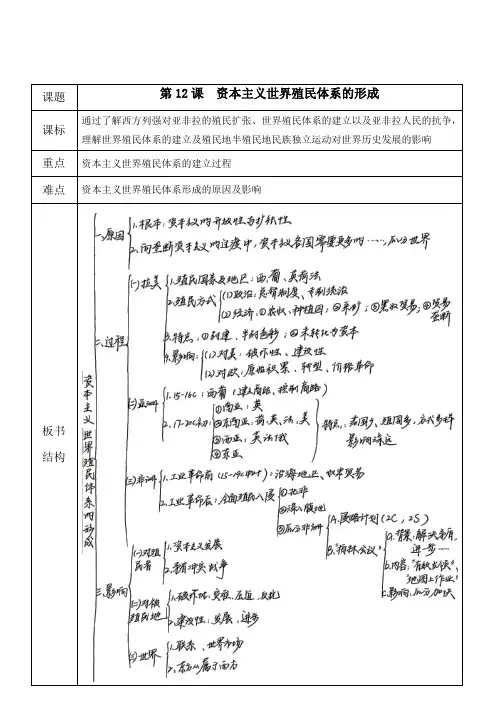 课题
第12课 资本主义世界殖民体系的形成
课标
通过了解西方列强对亚非拉的殖民扩张、世界殖民体系的建立以及亚非拉人民的抗争，
理解世界殖民体系的建立及殖民地半殖民地民族独立运动对世界历史发展的影响
重点
资本主义世界殖民体系的建立过程
难点
资本主义世界殖民体系形成的原因及影响
板书
结构
资本主义世界殖民体系的形成
一、原因
1、根本：资本主义的开放性与扩张性
2、向垄断资本主义的过渡中，资本主义各国需要更多的……，瓜分世界
二、过程
(一)拉美
1、殖民国家及地区：西、葡、英荷法
2、殖民方式
(1)政治：总督制度、专制统治
(2)经济：①农牧、种植园；②采矿；③黑奴贸易；④贸易
垄断
3、特点：①封建、半封建色彩；②未转化为资本
4、影响：
(1)对美：破坏性、建设性
(2)对欧：原始积累、转型、价格革命
(二)亚洲
1、15-16C：西葡（建立商路、控制商路）
2、17-20C初：
①南亚：英
②东南亚：荷、英、法、美
③西亚：英法俄
④东亚
特点：范围广、殖国多，方式多样
影响深远
(三)非洲
1、工业革命前(15-19C中叶)：沿海地区、奴隶贸易
2、工业革命后：全面殖民入侵
①北非
②深入腹地
③瓜分非洲
A、侵略计划(2C，2S)
B、“柏林会议”
a、背景：解决矛盾，
进一步……
b、内容：“有效占领”、
“地图上作业”
c、影响：瓜分加快
三、影响
(一)对殖
民者
1、资本主义发展
2、矛盾冲突、战争
(二)对被
殖民地
1、破坏性：灾难、压迫、反抗
2、建设性：发展、进步
(三)世界
1、联系、世界市场
2、东方从属于西方